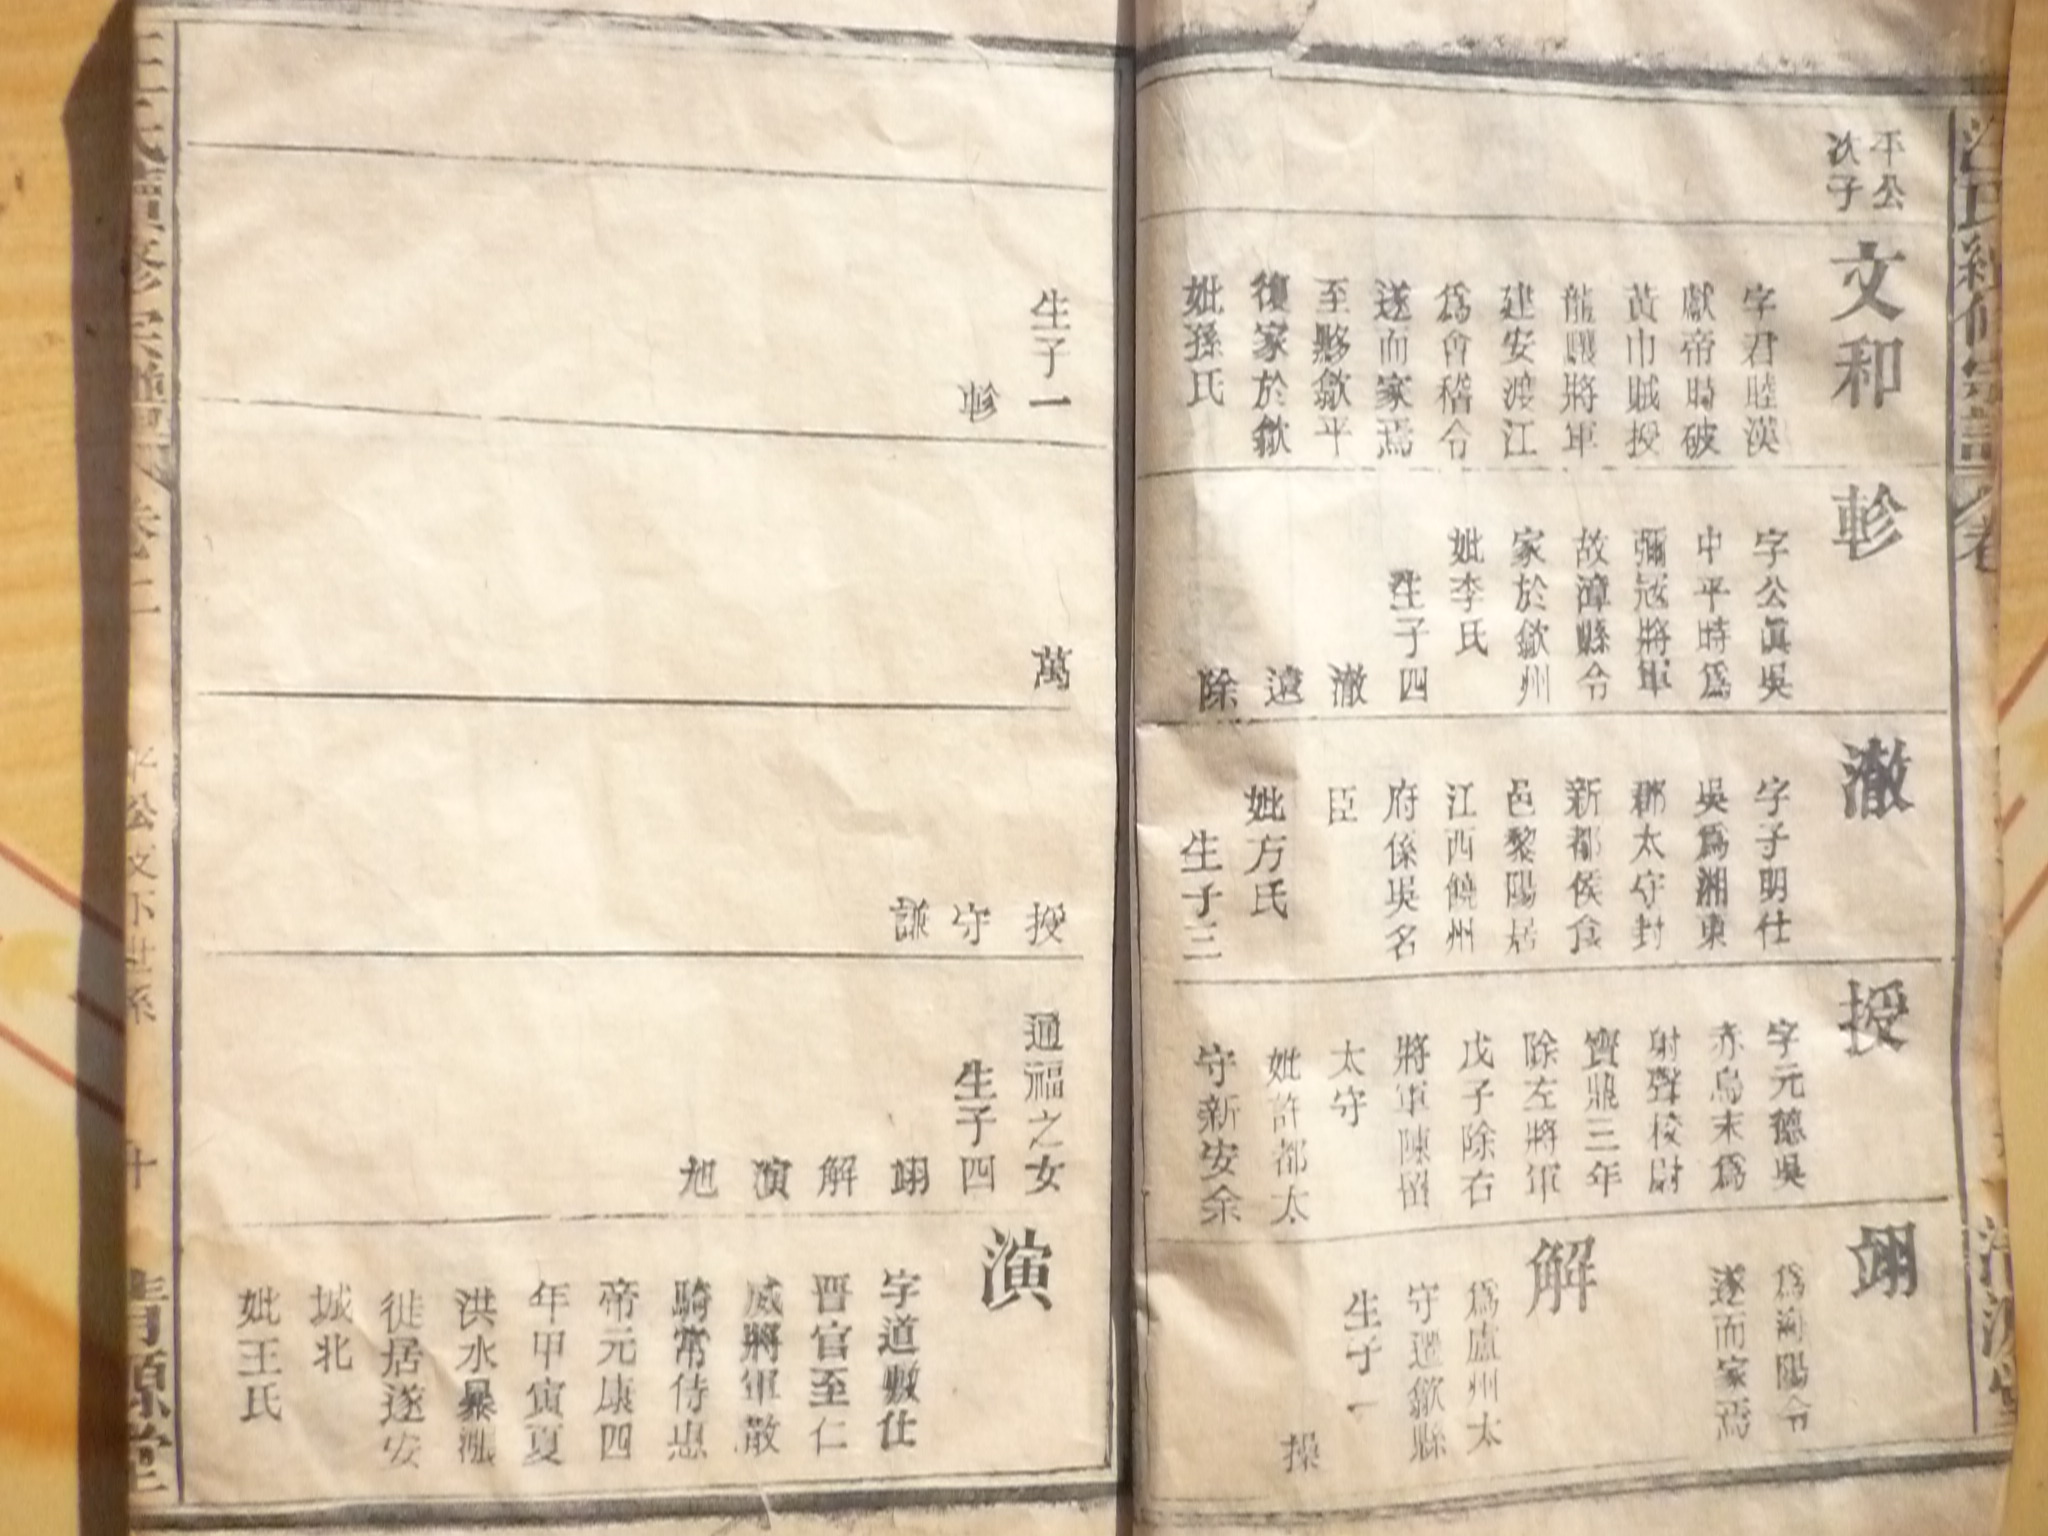 平公
次子
文和
字君睦漢
獻帝時破
黃巾賊授
龍驤將軍
建安渡江
為會稽令
遂而家焉
至黟歙平
復家於歙
妣孫氏
生子一
軫
軫
字公眞吳
中平時為
彌冦將軍
故漳縣令
家於歙州
妣李氏
生子四
澈
遠
除
萬
澈
字子明仕
吳爲湘東
郡太守封
新都侯食
邑黎陽居
江西饒州
府係吳名
臣
妣方氏
生子三
授
守
謙
授
字元德吳
赤烏末為
射聲校尉
寶鼎三年
除左將軍
戊子除右
將軍陳留
太守
妣許都太
守新安余
通福之女
生子四
翊
解
演
旭
翊
為潁陽令
遂而家焉
解
為盧州太
守遷歙縣
生子一
操
演
字道敷仕
晋官至仁
威將軍散
騎常侍惠
帝元康四
年甲寅夏
洪水暴漲
徙居遂安
城北
妣王氏
汪氏續修宗譜
卷二
平公文下世系
十
清源堂